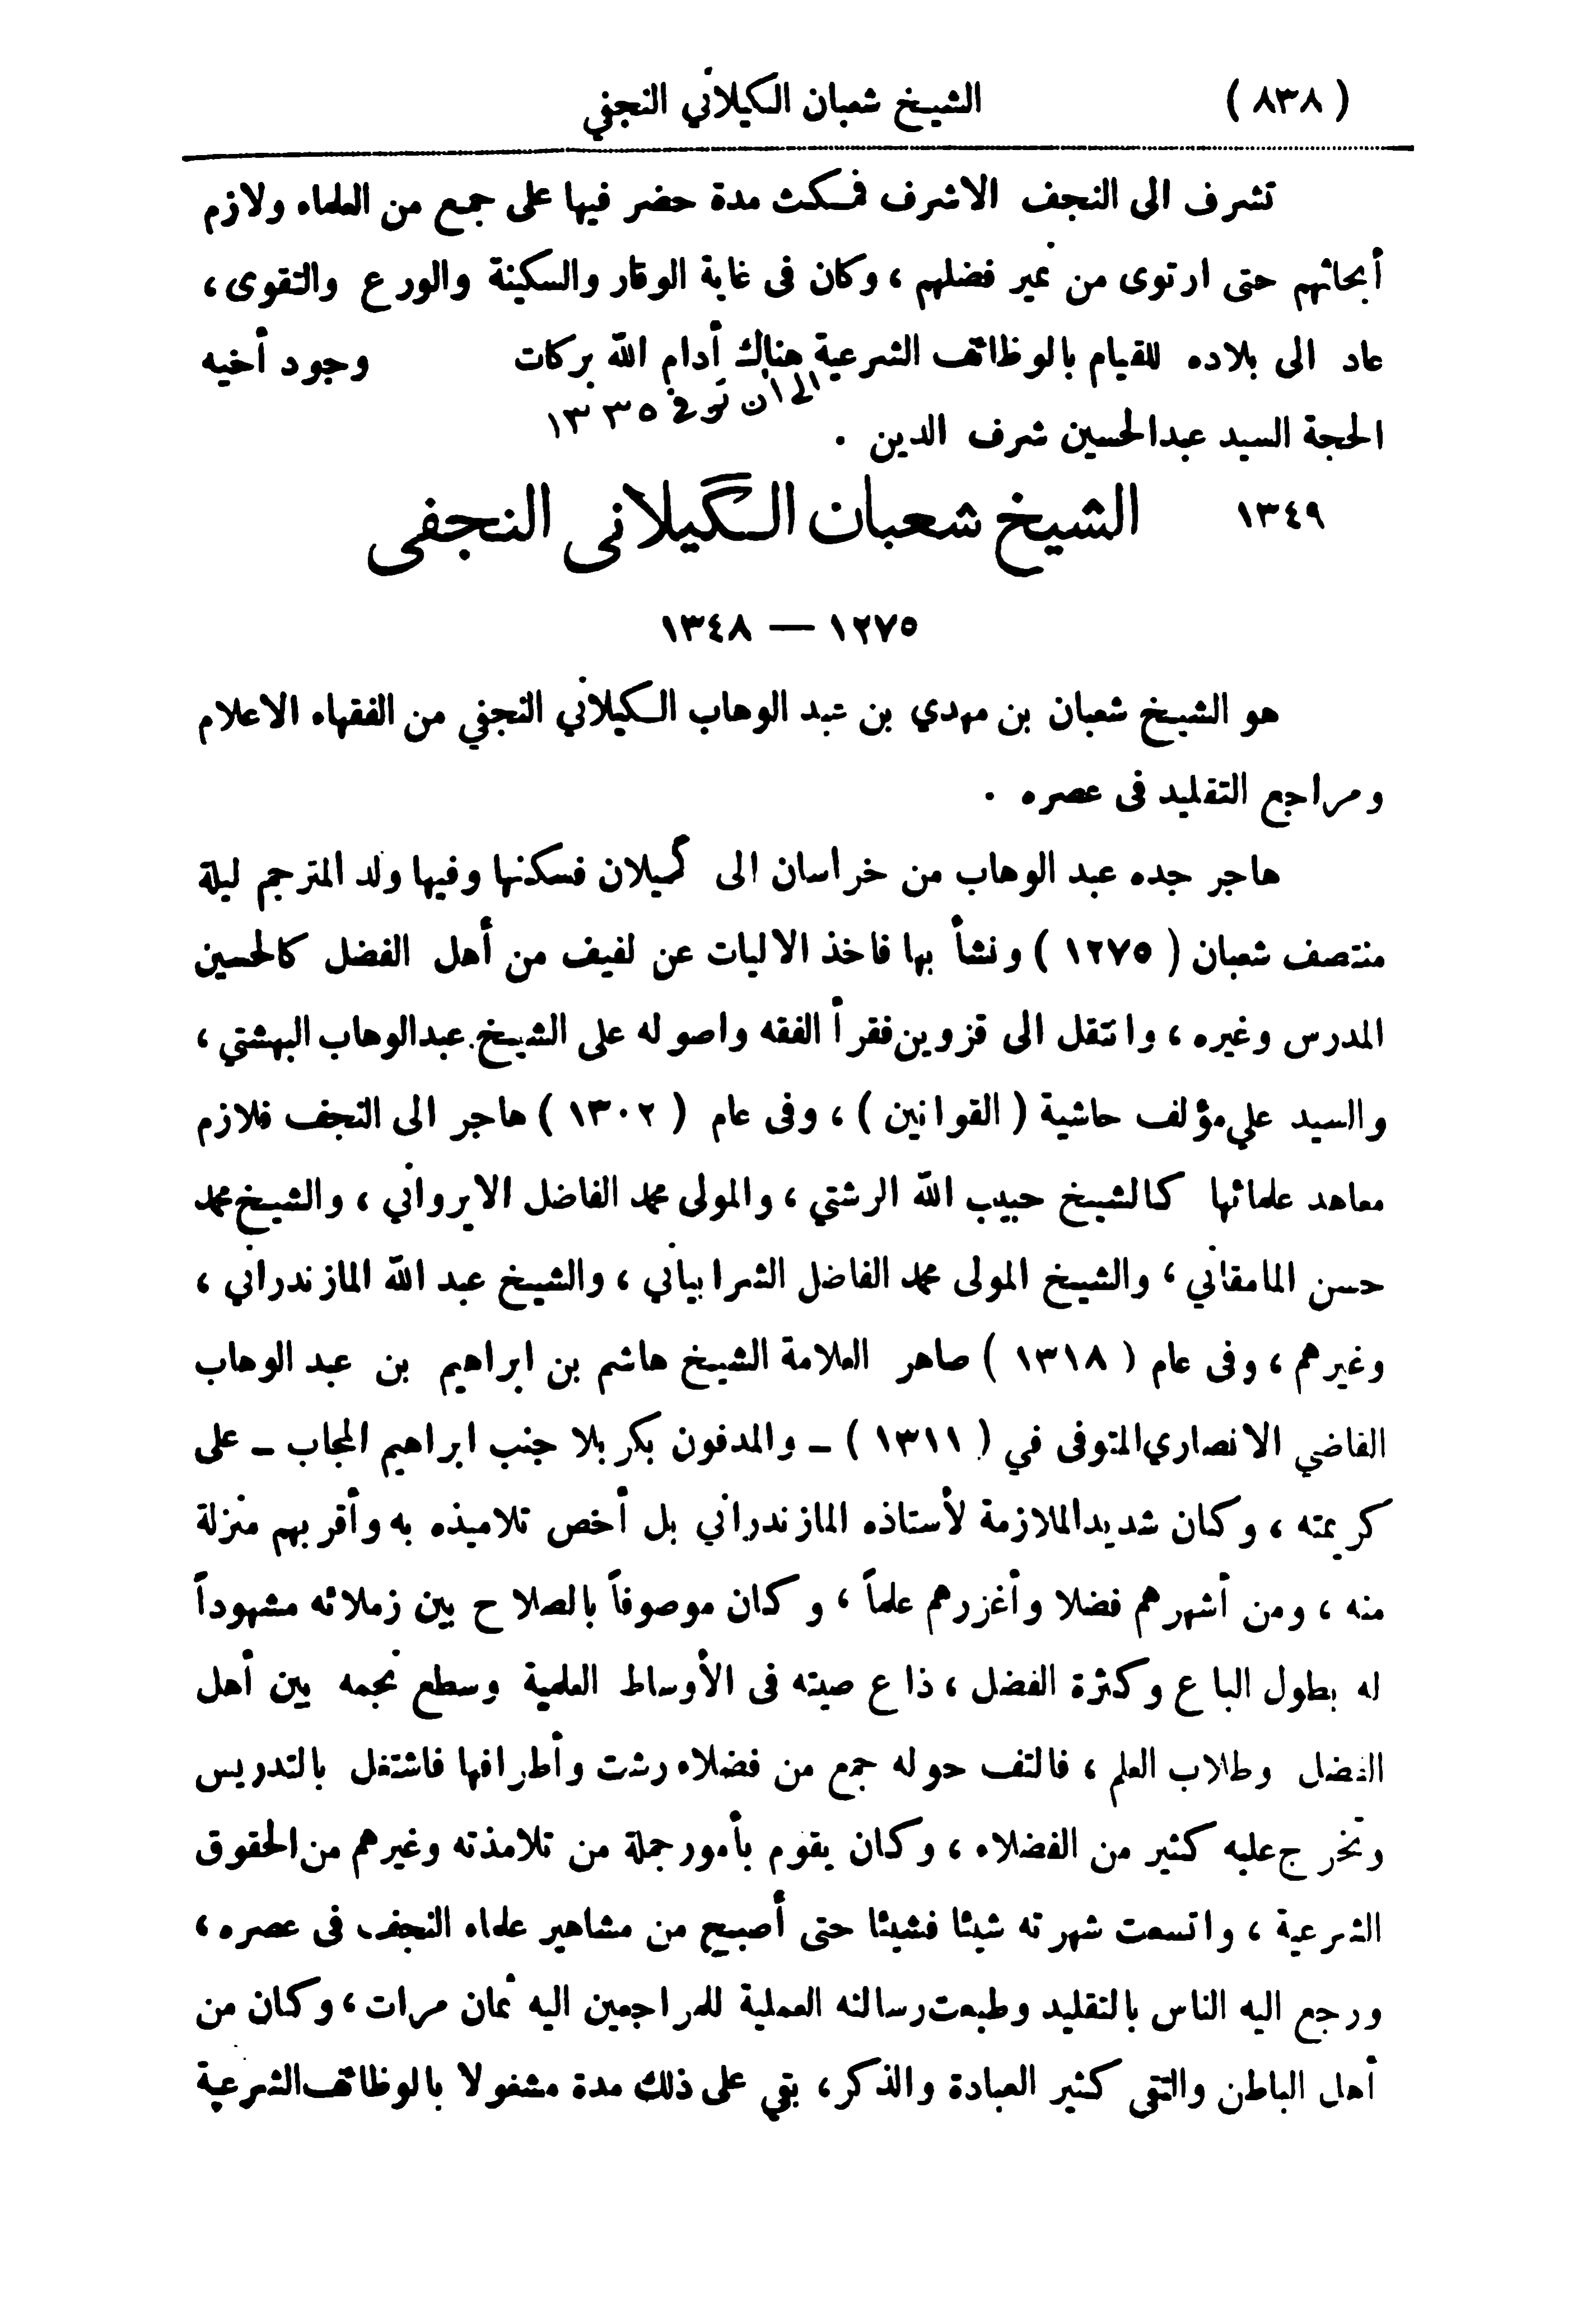 ( ٨٣٨ ) الشيخ شعبان الكيلاني النجفي
تشرف الى النجف الاشرف فمكث مدة حضر فيها على جمع من العلماء ولازم
أبحاثهم حتى ارتوى من نمير فضلهم ، وكان فى غاية الوقار والسكينة والورع والتقوى ،
عاد الى بلاده للقيام بالوظائف الشرعية هناك أدام الله بركات وجود أخيه
الى ان توفى ١٣٣٥
الحجة السيد عبدالحسين شرف الدين .
١٣٤٩ الشيخ شعبان الگيلانى النجفى
١٢٧٥ — ١٣٤٨
هو الشيخ شعبان بن مهدي بن عبد الوهاب الكيلاني النجفي من الفقهاء الاعلام
ومراجع التقليد فى عصره .
هاجر جده عبد الوهاب من خراسان الى گيلان فسكنها وفيها ولد المترجم ليلة
منتصف شعبان ( ١٢٧٥ ) ونشأ بها فاخذ الاليات عن لفيف من أهل الفضل كالحسين
المدرس وغيره ، وانتقل الى قزوين فقرأ الفقه واصوله على الشيخ عبدالوهاب البهشتي ،
والسيد علي مؤلف حاشية ( القوانين ) ، وفى عام ( ١٣٠٢ ) هاجر الى النجف فلازم
معاهد علمائها كالشيخ حبيب الله الرشتي ، والمولى محمد الفاضل الايرواني ، والشيخ محمد
حسن المامقاني ، والشيخ المولى محمد الفاضل الشرابياني ، والشيخ عبد الله المازندراني ،
وغيرهم ، وفى عام ( ١٣١٨ ) صاهر العلامة الشيخ هاشم بن ابراهيم بن عبد الوهاب
القاضي الانصاري المتوفى في ( ١٣١١ ) ـ والمدفون بكربلا جنب ابراهيم المجاب ـ على
كريمته ، وكان شديد الملازمة لأستاذه المازندراني بل أخص تلاميذه به وأقربهم منزلة
منه ، ومن أشهرهم فضلا وأغزرهم علماً ، وكان موصوفاً بالصلاح بين زملائه مشهوداً
له بطول الباع وكثرة الفضل ، ذاع صيته فى الأوساط العلمية وسطع نجمه بين أهل
الفضل وطلاب العلم ، فالتف حوله جمع من فضلاء رشت وأطرافها فاشتغل بالتدريس
وتخرج عليه كثير من الفضلاء ، وكان يقوم بأمور جملة من تلامذته وغيرهم من الحقوق
الشرعية ، واتسعت شهرته شيئا فشيئا حتى أصبح من مشاهير علماء النجف فى عصره ،
ورجع اليه الناس بالتقليد وطبعت رسالته العملية للمراجعين اليه ثمان مرات ، وكان من
أهل الباطن والتقى كثير العبادة والذكر ، بقي على ذلك مدة مشغولا بالوظائف الشرعية